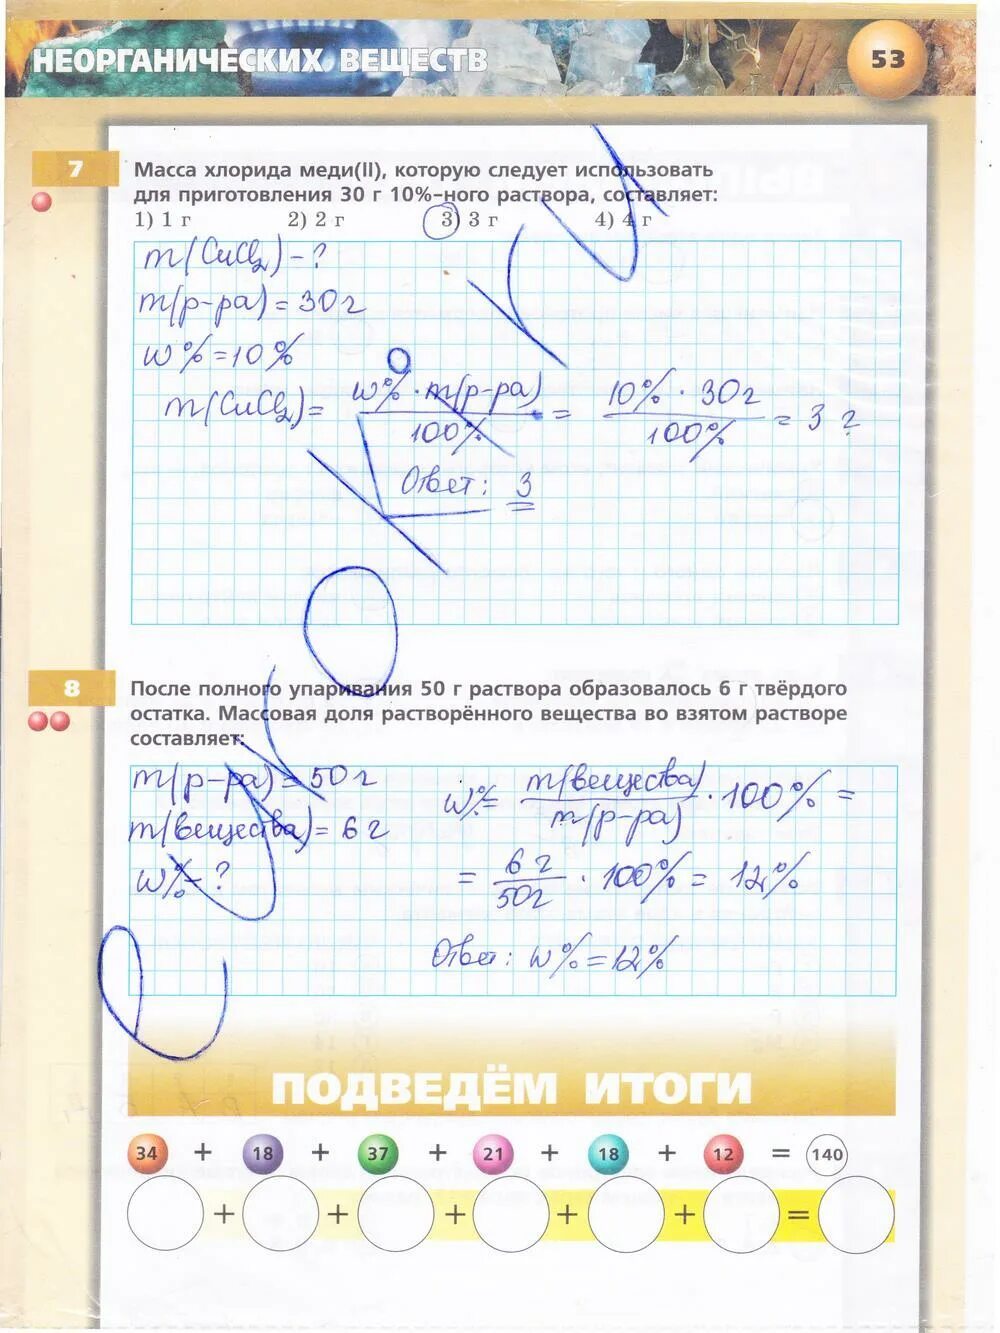 НЕОРГАНИЧЕСКИХ ВЕЩЕСТВ
53
7
Масса хлорида меди(II), которую следует использовать
для приготовления 30 г 10%-ного раствора, составляет:
1) 1 г 2) 2 г 3) 3 г 4) 4 г
m(CuCl₂) - ?
m(р-ра) = 30 г
w% = 10%
m(CuCl₂) = w% · m(р-ра) / 100% = 10% · 30 г / 100% = 3 г
Ответ: 3
8
После полного упаривания 50 г раствора образовалось 6 г твёрдого
остатка. Массовая доля растворённого вещества во взятом растворе
составляет:
m(р-ра) = 50 г
m(вещества) = 6 г
w% - ?
w% = m(вещества) / m(р-ра) · 100% =
= 6 г / 50 г · 100% = 12%
Ответ: w% = 12%
ПОДВЕДЁМ ИТОГИ
34 + 18 + 37 + 21 + 18 + 12 = 140
+ + + + + =